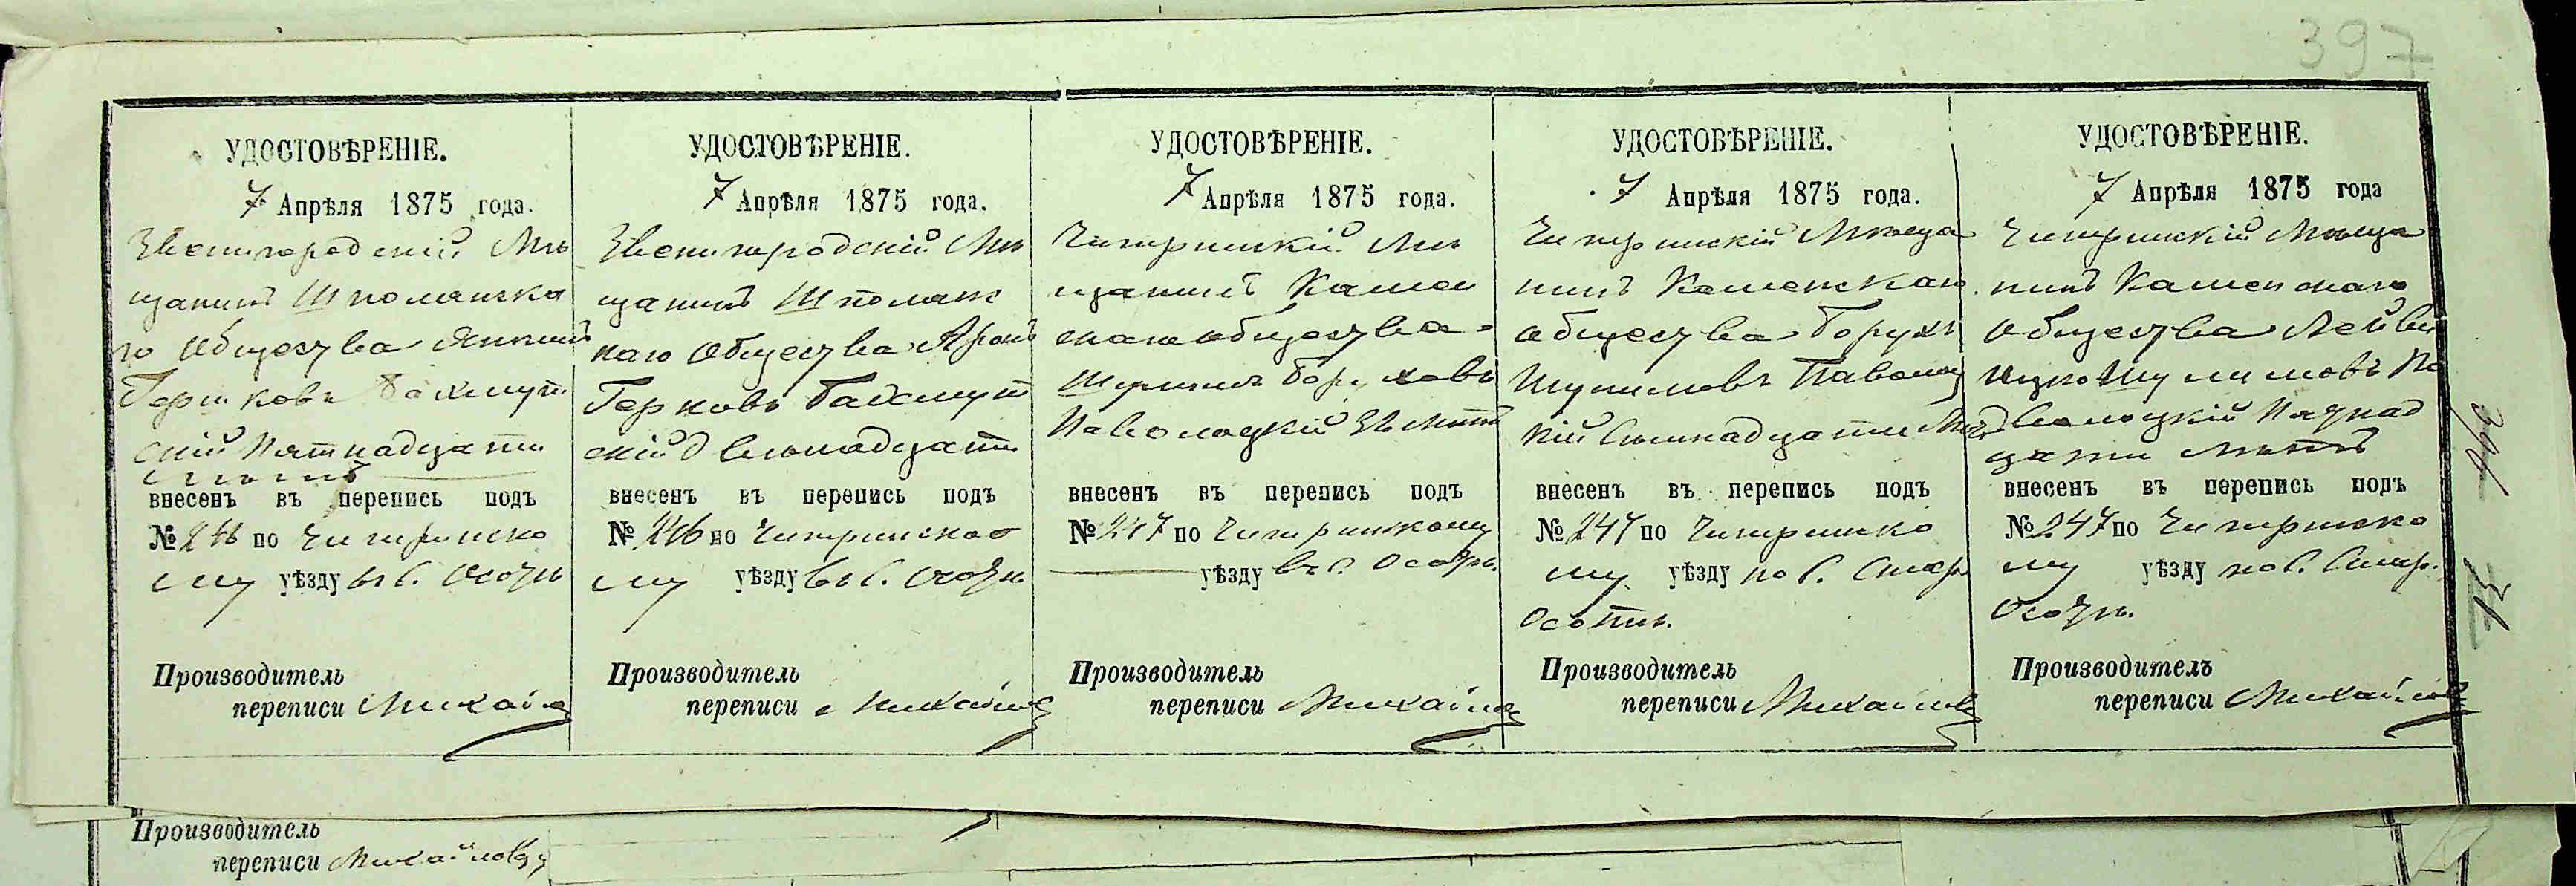 397
УДОСТОВѢРЕНІЕ.
7 Апрѣля 1875 года.
Звенигородскій Мѣ
щанинъ Шполянска
го Общества Янкель
Герш ковъ Бахмут
скій Пятнадцати
лѣтъ
внесенъ въ перепись подъ
№ 246 по Чигиринско
му уѣзду въ с. Осотѣ
Производитель
переписи Михайлов
УДОСТОВѢРЕНІЕ.
7 Апрѣля 1875 года.
Звенигородскій Мѣ
щанинъ Шполянс
каго Общества Аронъ
Герковъ Бахмут
скій двѣнадцати
внесенъ въ перепись подъ
№ 246 по Чигиринско
му уѣзду въ с. Осотѣ
Производитель
переписи Михайлов
УДОСТОВѢРЕНІЕ.
7 Апрѣля 1875 года.
Чигиринскій Мѣ
щанинъ Камен
скаго общества
Шулимъ Боруховъ
Паволоцкій 38 лѣтъ
внесенъ въ перепись подъ
№ 247 по Чигиринскому
уѣзду въ с. Осотѣ.
Производитель
переписи Михайлов
УДОСТОВѢРЕНІЕ.
7 Апрѣля 1875 года.
Чигиринскій Мѣща
нинъ Каменскаго
Общества Борухъ
Шулимовъ Паволоц
кій Семнадцати лѣт
внесенъ въ перепись подъ
№ 247 по Чигиринско
му уѣзду по с. Стар.
Осотѣ.
Производитель
переписи Михайлов
УДОСТОВѢРЕНІЕ.
7 Апрѣля 1875 года
Чигиринскій Мѣща
нинъ Каменскаго
Общества Лейви
Ицко Шулимовъ Па
волоцкій Пятнад
цати лѣтъ
внесенъ въ перепись подъ
№ 247 по Чигиринско
му уѣзду по с. Стар.
Осотѣ.
Производитель
переписи Михайлов
Производитель
переписи Михайловъ